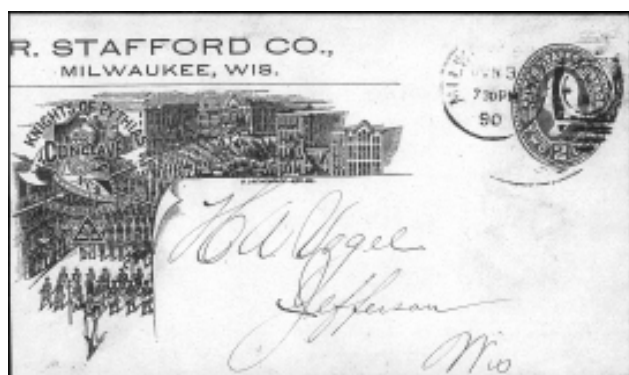 R. STAFFORD CO.,
MILWAUKEE, WIS.
KNIGHTS OF PYTHIAS
CONCLAVE
3
730PM
90
2
H A
Jefferson
Wis